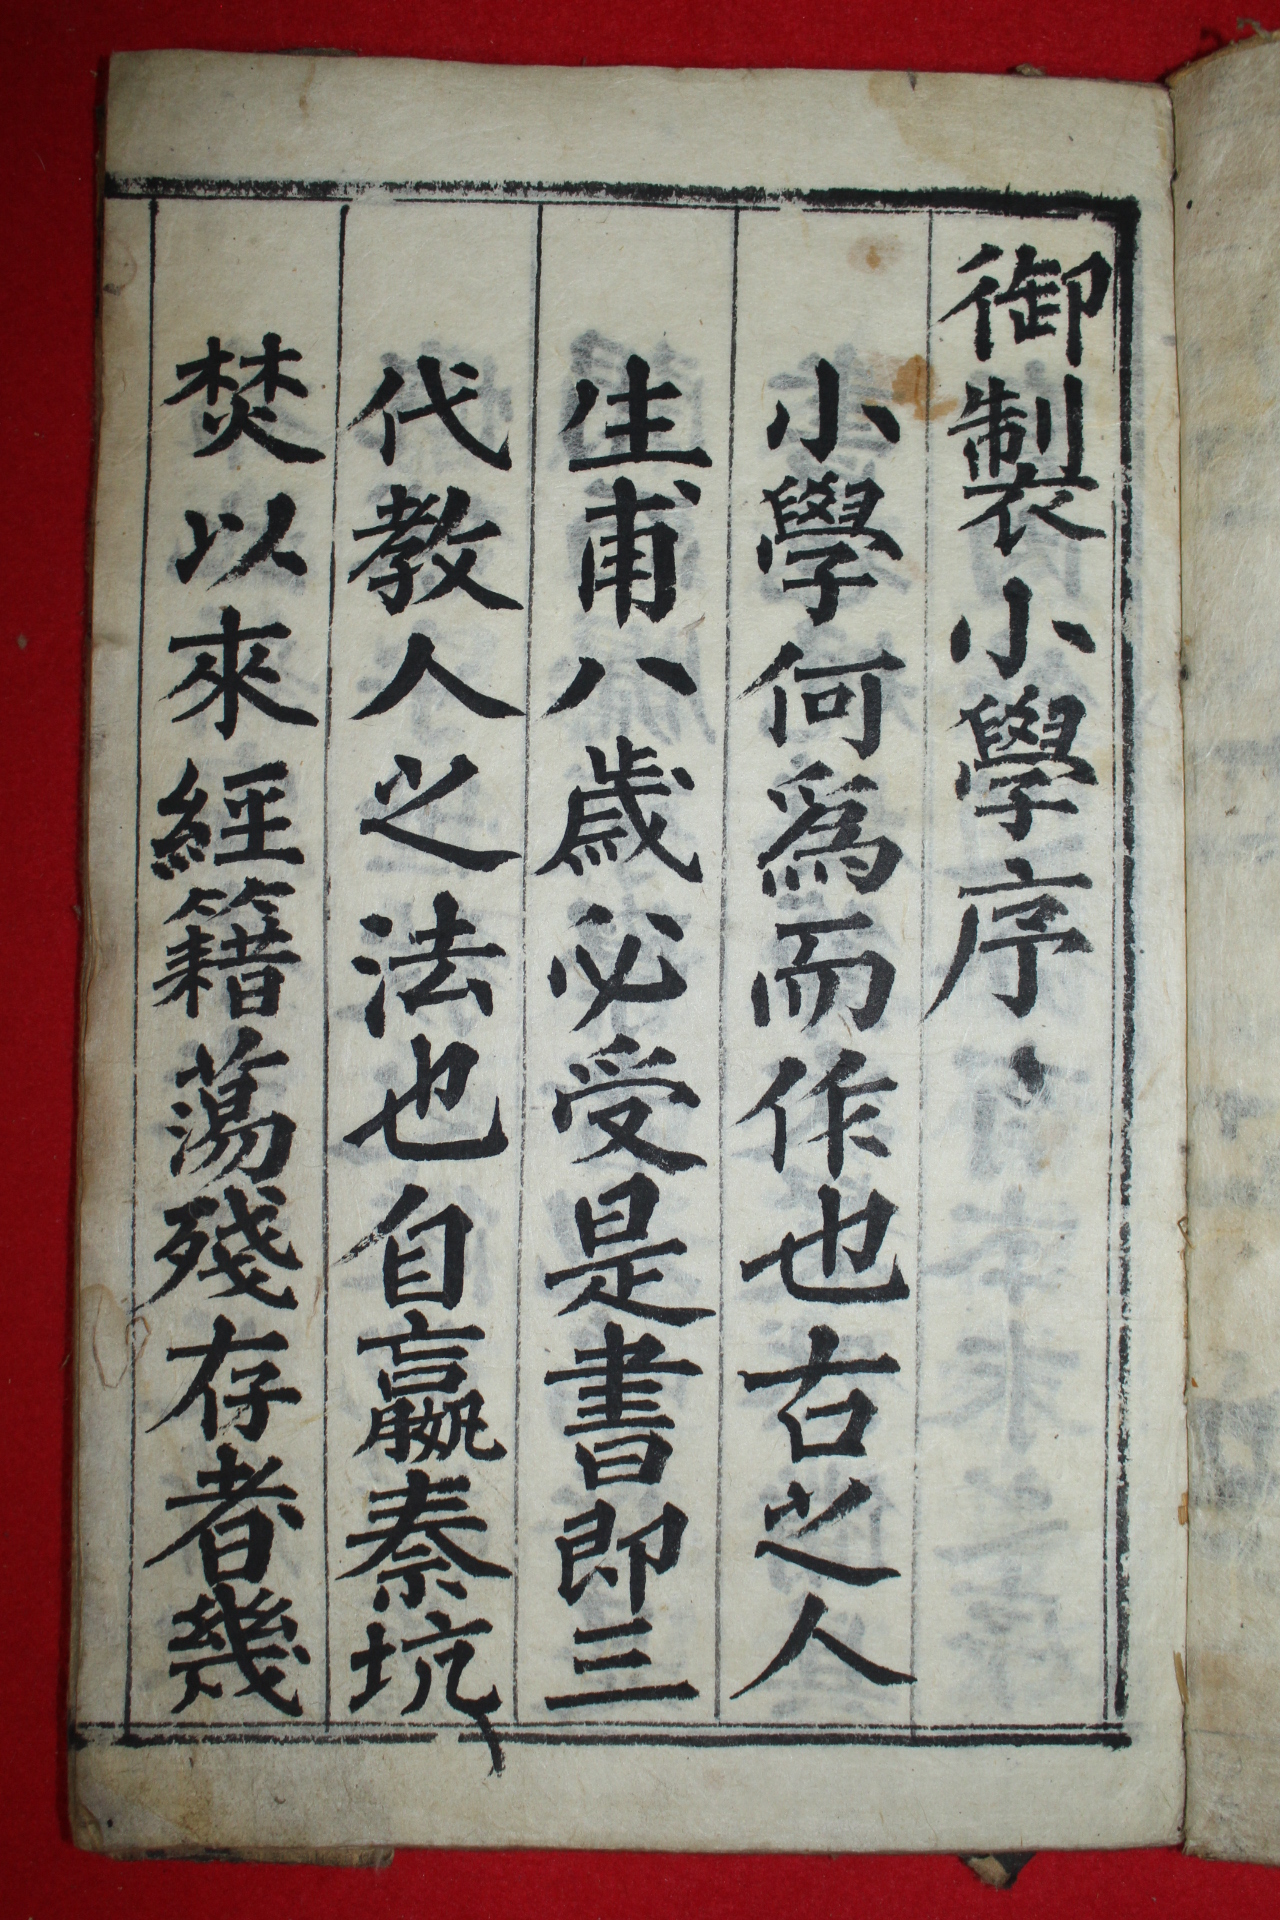 御製小學序
小學何爲而作也古之人
生甫八歲必受是書即三
代敎人之法也自嬴秦坑
焚以來經籍蕩殘存者幾